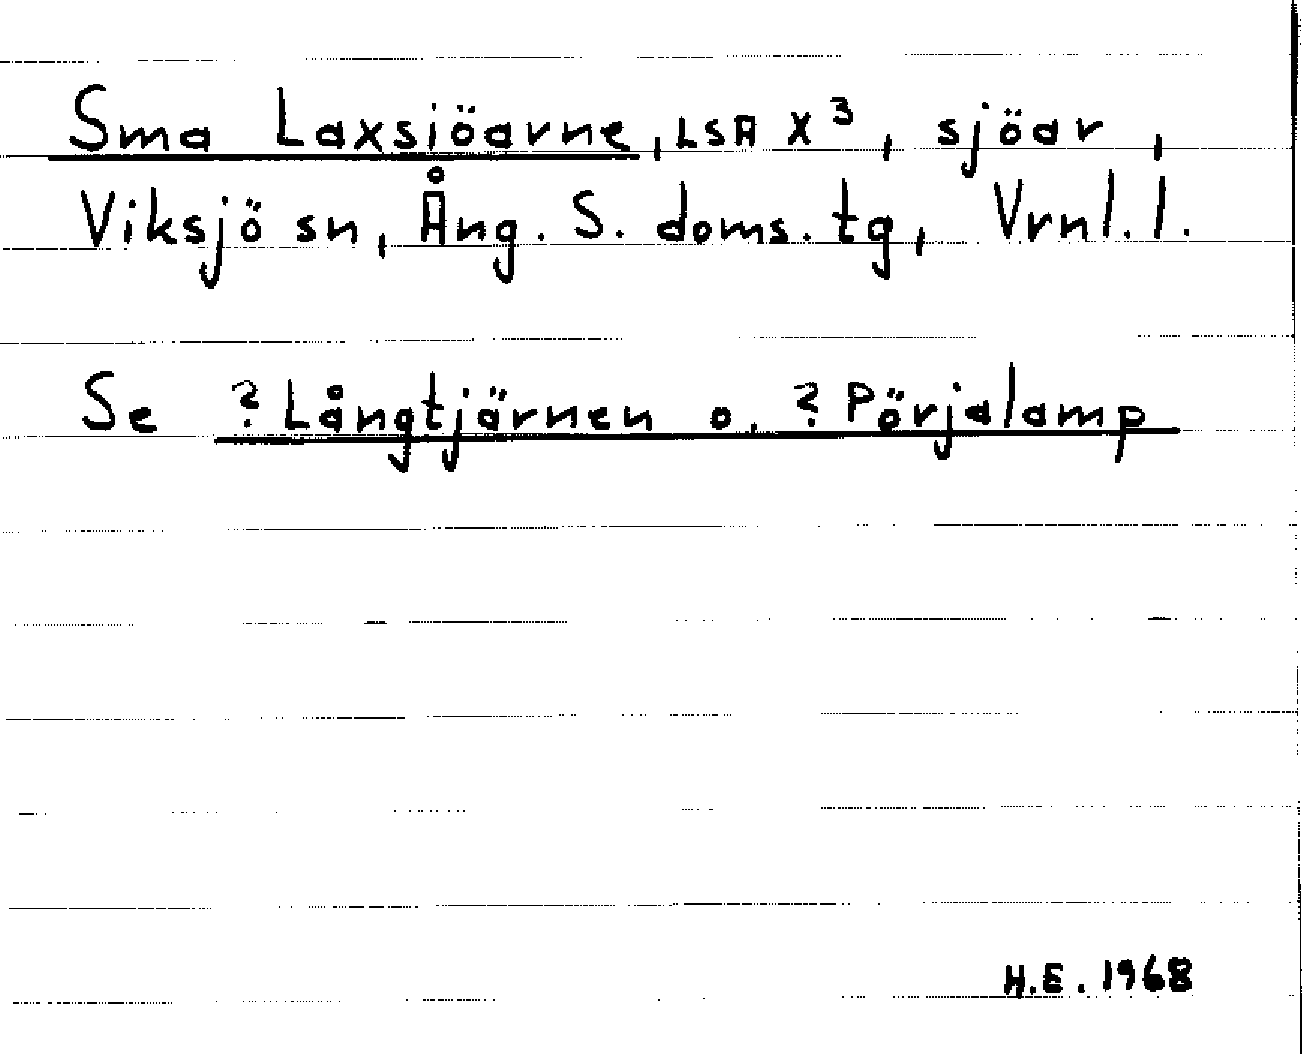 Sma Laxsiöarne, LSA X³, sjöar,
Viksjö sn, Ång. S. doms. tg, Vrnl. l.
Se ?Långtjärnen o. ?Pörjalamp
H.E. 1968